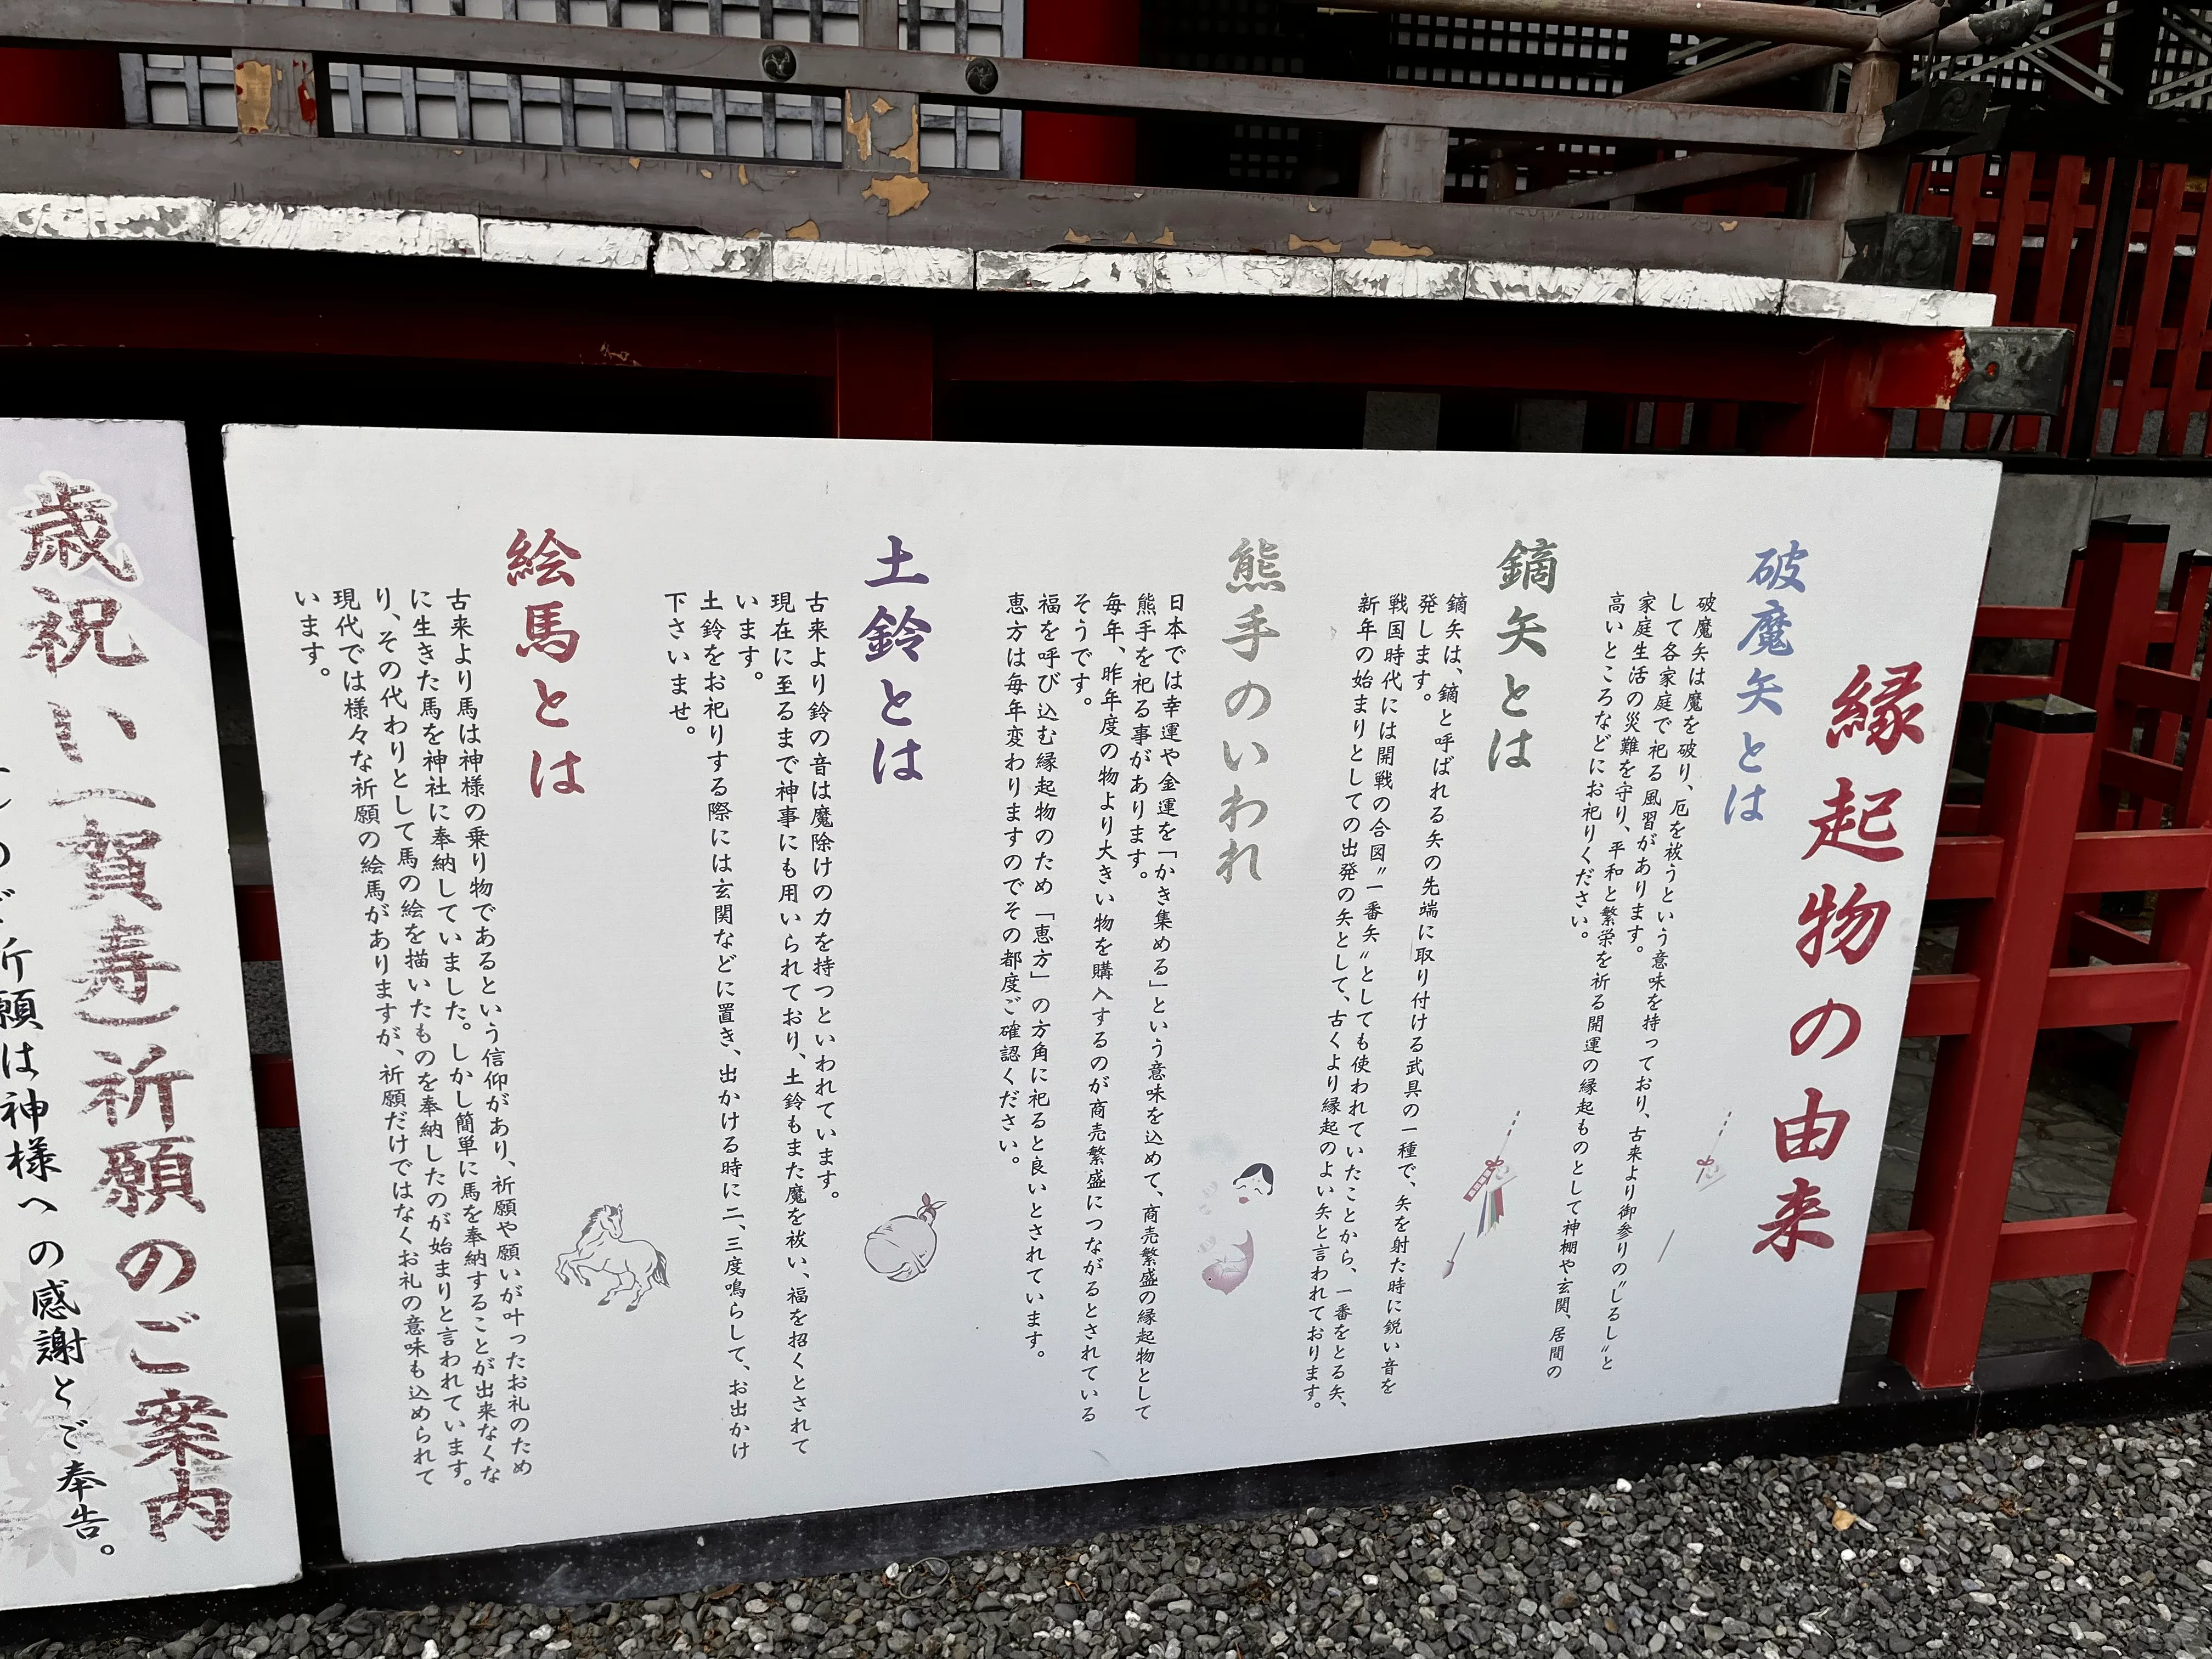 縁起物の由来
破魔矢とは
破魔矢は魔を破り、厄を祓うという意味を持っており、古来より御参りの〝しるし〟と
して各家庭で祀る風習があります。
家庭生活の災難を守り、平和と繁栄を祈る開運の縁起ものとして神棚や玄関、居間の
高いところなどにお祀りください。
鏑矢とは
鏑矢は、鏑と呼ばれる矢の先端に取り付ける武具の一種で、矢を射た時に鋭い音を
発します。
戦国時代には開戦の合図〝一番矢〟としても使われていたことから、一番をとる矢、
新年の始まりとしての出発の矢として、古くより縁起のよい矢と言われております。
熊手のいわれ
日本では幸運や金運を「かき集める」という意味を込めて、商売繁盛の縁起物として
熊手を祀る事があります。
毎年、昨年度の物より大きい物を購入するのが商売繁盛につながるとされている
そうです。
福を呼び込む縁起物のため「恵方」の方角に祀ると良いとされています。
恵方は毎年変わりますのでその都度ご確認ください。
土鈴とは
古来より鈴の音は魔除けの力を持つといわれています。
現在に至るまで神事にも用いられており、土鈴もまた魔を祓い、福を招くとされて
います。
土鈴をお祀りする際には玄関などに置き、出かける時に二、三度鳴らして、お出かけ
下さいませ。
絵馬とは
古来より馬は神様の乗り物であるという信仰があり、祈願や願いが叶ったお礼のため
に生きた馬を神社に奉納していました。しかし簡単に馬を奉納することが出来なくな
り、その代わりとして馬の絵を描いたものを奉納したのが始まりと言われています。
現代では様々な祈願の絵馬がありますが、祈願だけではなくお礼の意味も込められて
います。
歳祝い(賀寿)祈願のご案内
祈願は神様への感謝とご奉告。